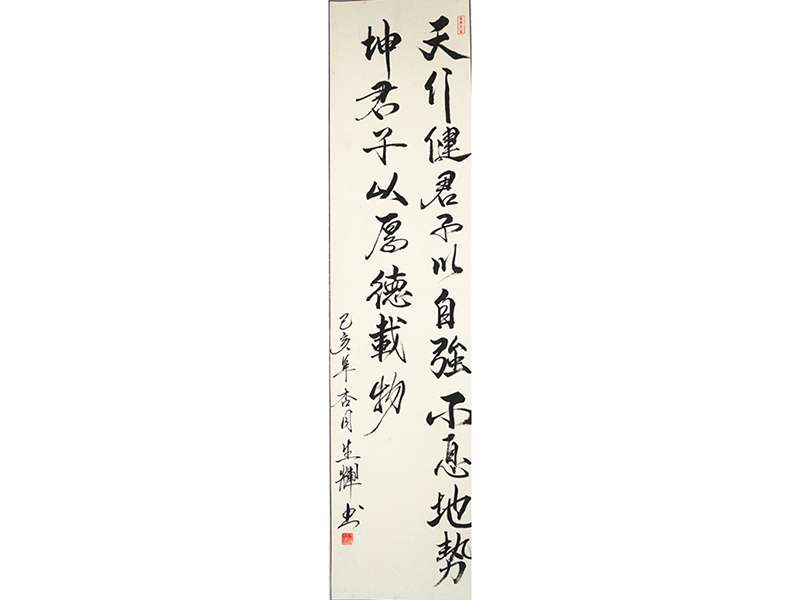 天行健君子以自強不息地勢
坤君子以厚德載物
己亥年杏月生輝书